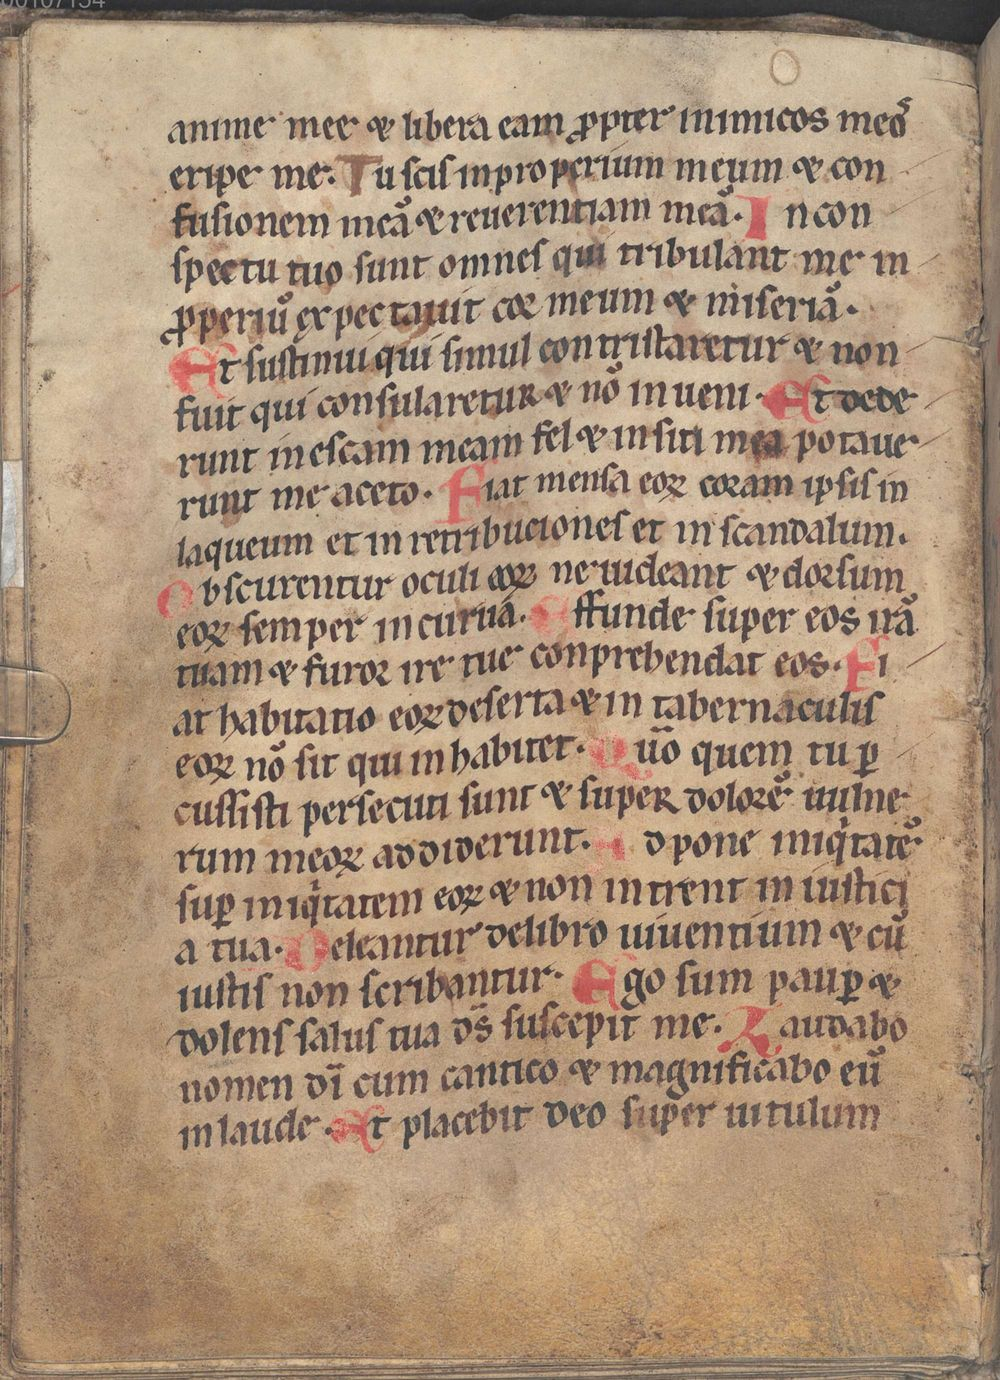 00107154
anime mee & libera eam ꝓpter inimicos meos̄
eripe me. Tu scis inproperium meum & con
fusionem meā & reuerentiam meā. In con
spectu tuo sunt omnes qui tribulant me in
ꝓperiū expectauit cor meum & miseriā.
Et sustinui qui simul contristaretur & non
fuit qui consularetur & nō inueni. Et dede
runt in escam meam fel & in siti mea potaue
runt me aceto. Fiat mensa eoꝝ coram ipsis in
laqueum et in retribuciones et in scandalum.
Obscurentur oculi eoꝝ ne uideant & dorsum
eoꝝ semper incuruā. Effunde super eos irā
tuam & furor ire tue conprehendat eos. Fi
at habitatio eoꝝ deserta & in tabernaculis
eoꝝ nō sit qui inhabitet. Qūo quem tu ꝑ
cussisti persecuti sunt & super dolorē uulne
rum meoꝝ addiderunt. Adpone iniqͥtatē
suꝑ iniqͥtatem eoꝝ & non intrent in iustici
a tua. Deleantur de libro uiuentium & cū
iustis non scribantur. Ego sum pauꝑ &
dolens salus tua ds̄ suscepit me. Laudabo
nomen dī cum cantico & magnificabo eū
in laude. Et placebit deo super uitulum